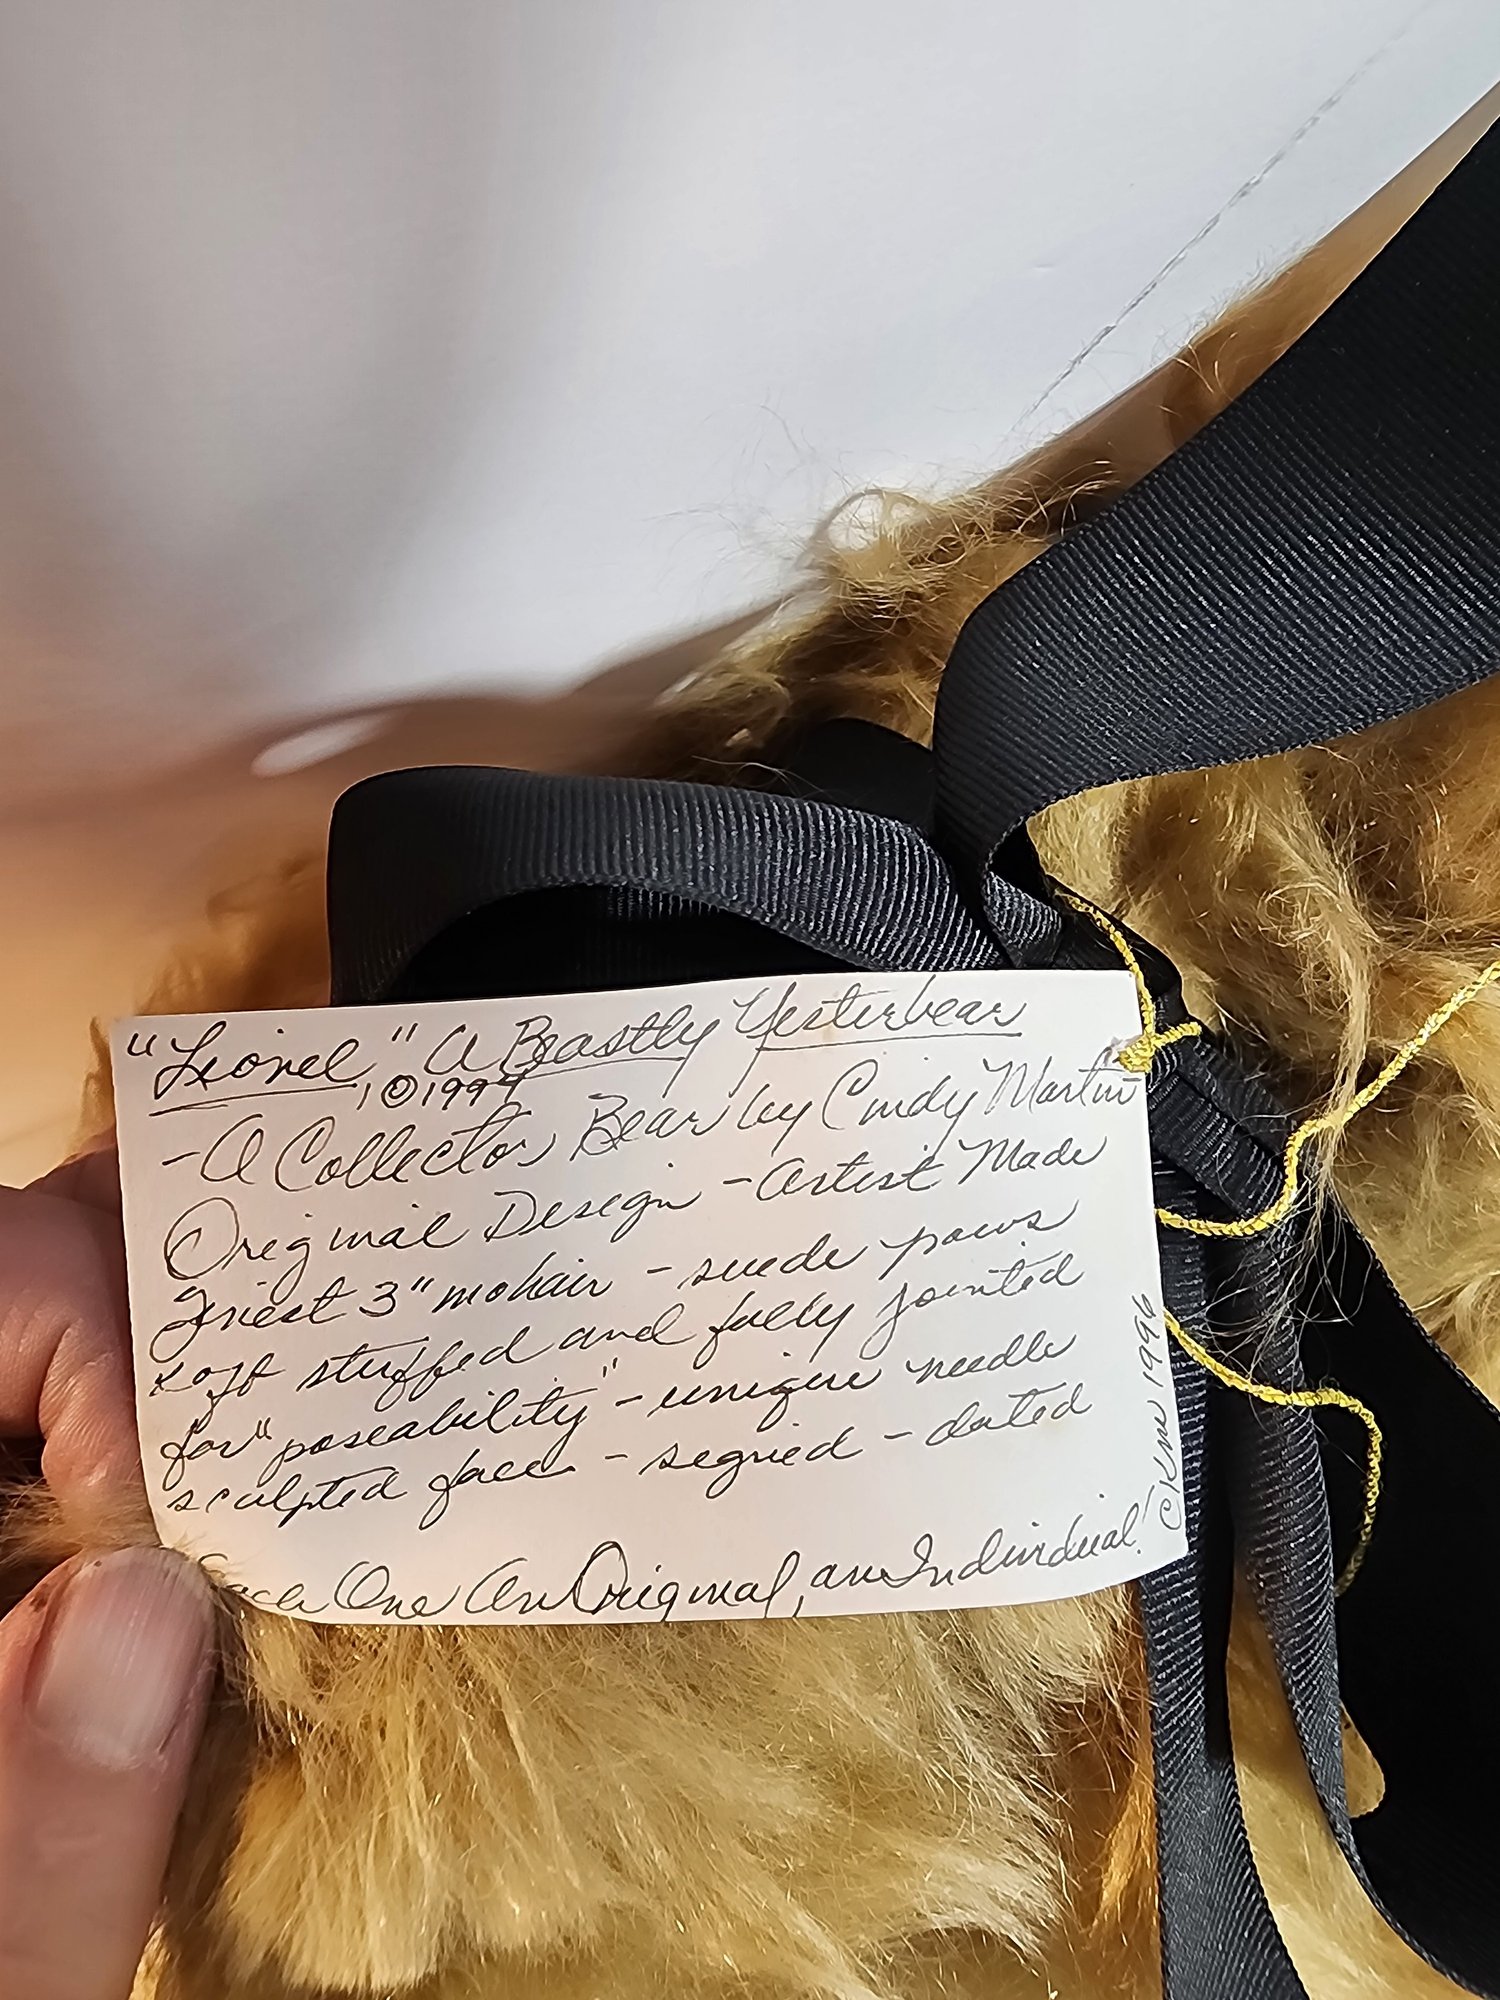 "Lionel" A Beastly Yesterbear
, ©1997
- A Collector Bear by Cindy Martin
Original Design - Artist Made
Finest 3" mohair - suede paws
soft stuffed and fully jointed
for "poseability" - unique needle
sculpted face - signed - dated
Each One An Original, an Individual!
1996